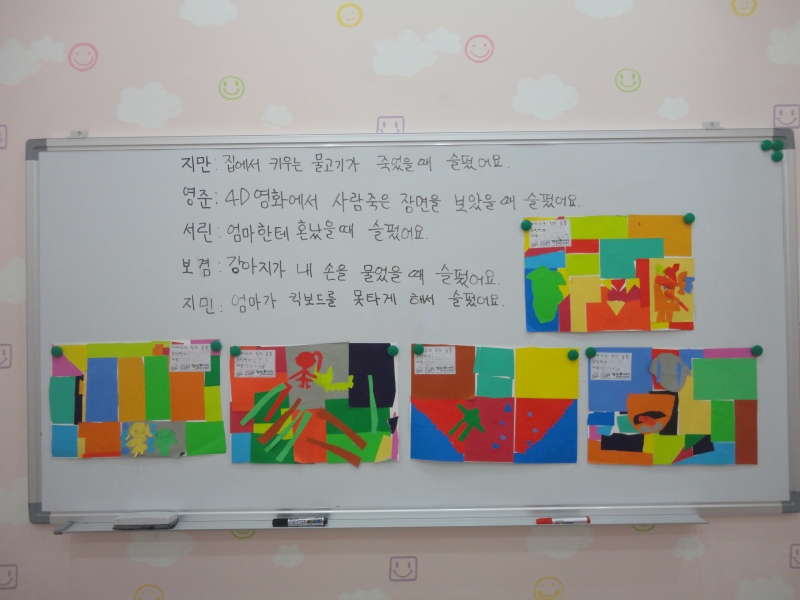 지만: 집에서 키우는 물고기가 죽었을때 슬펐어요.
영준: 4D영화에서 사람죽은 장면을 보았을때 슬펐어요.
서린: 엄마한테 혼났을때 슬펐어요.
보겸: 강아지가 내 손을 물었을때 슬펐어요.
지민: 엄마가 킥보드를 못타게 해서 슬펐어요.